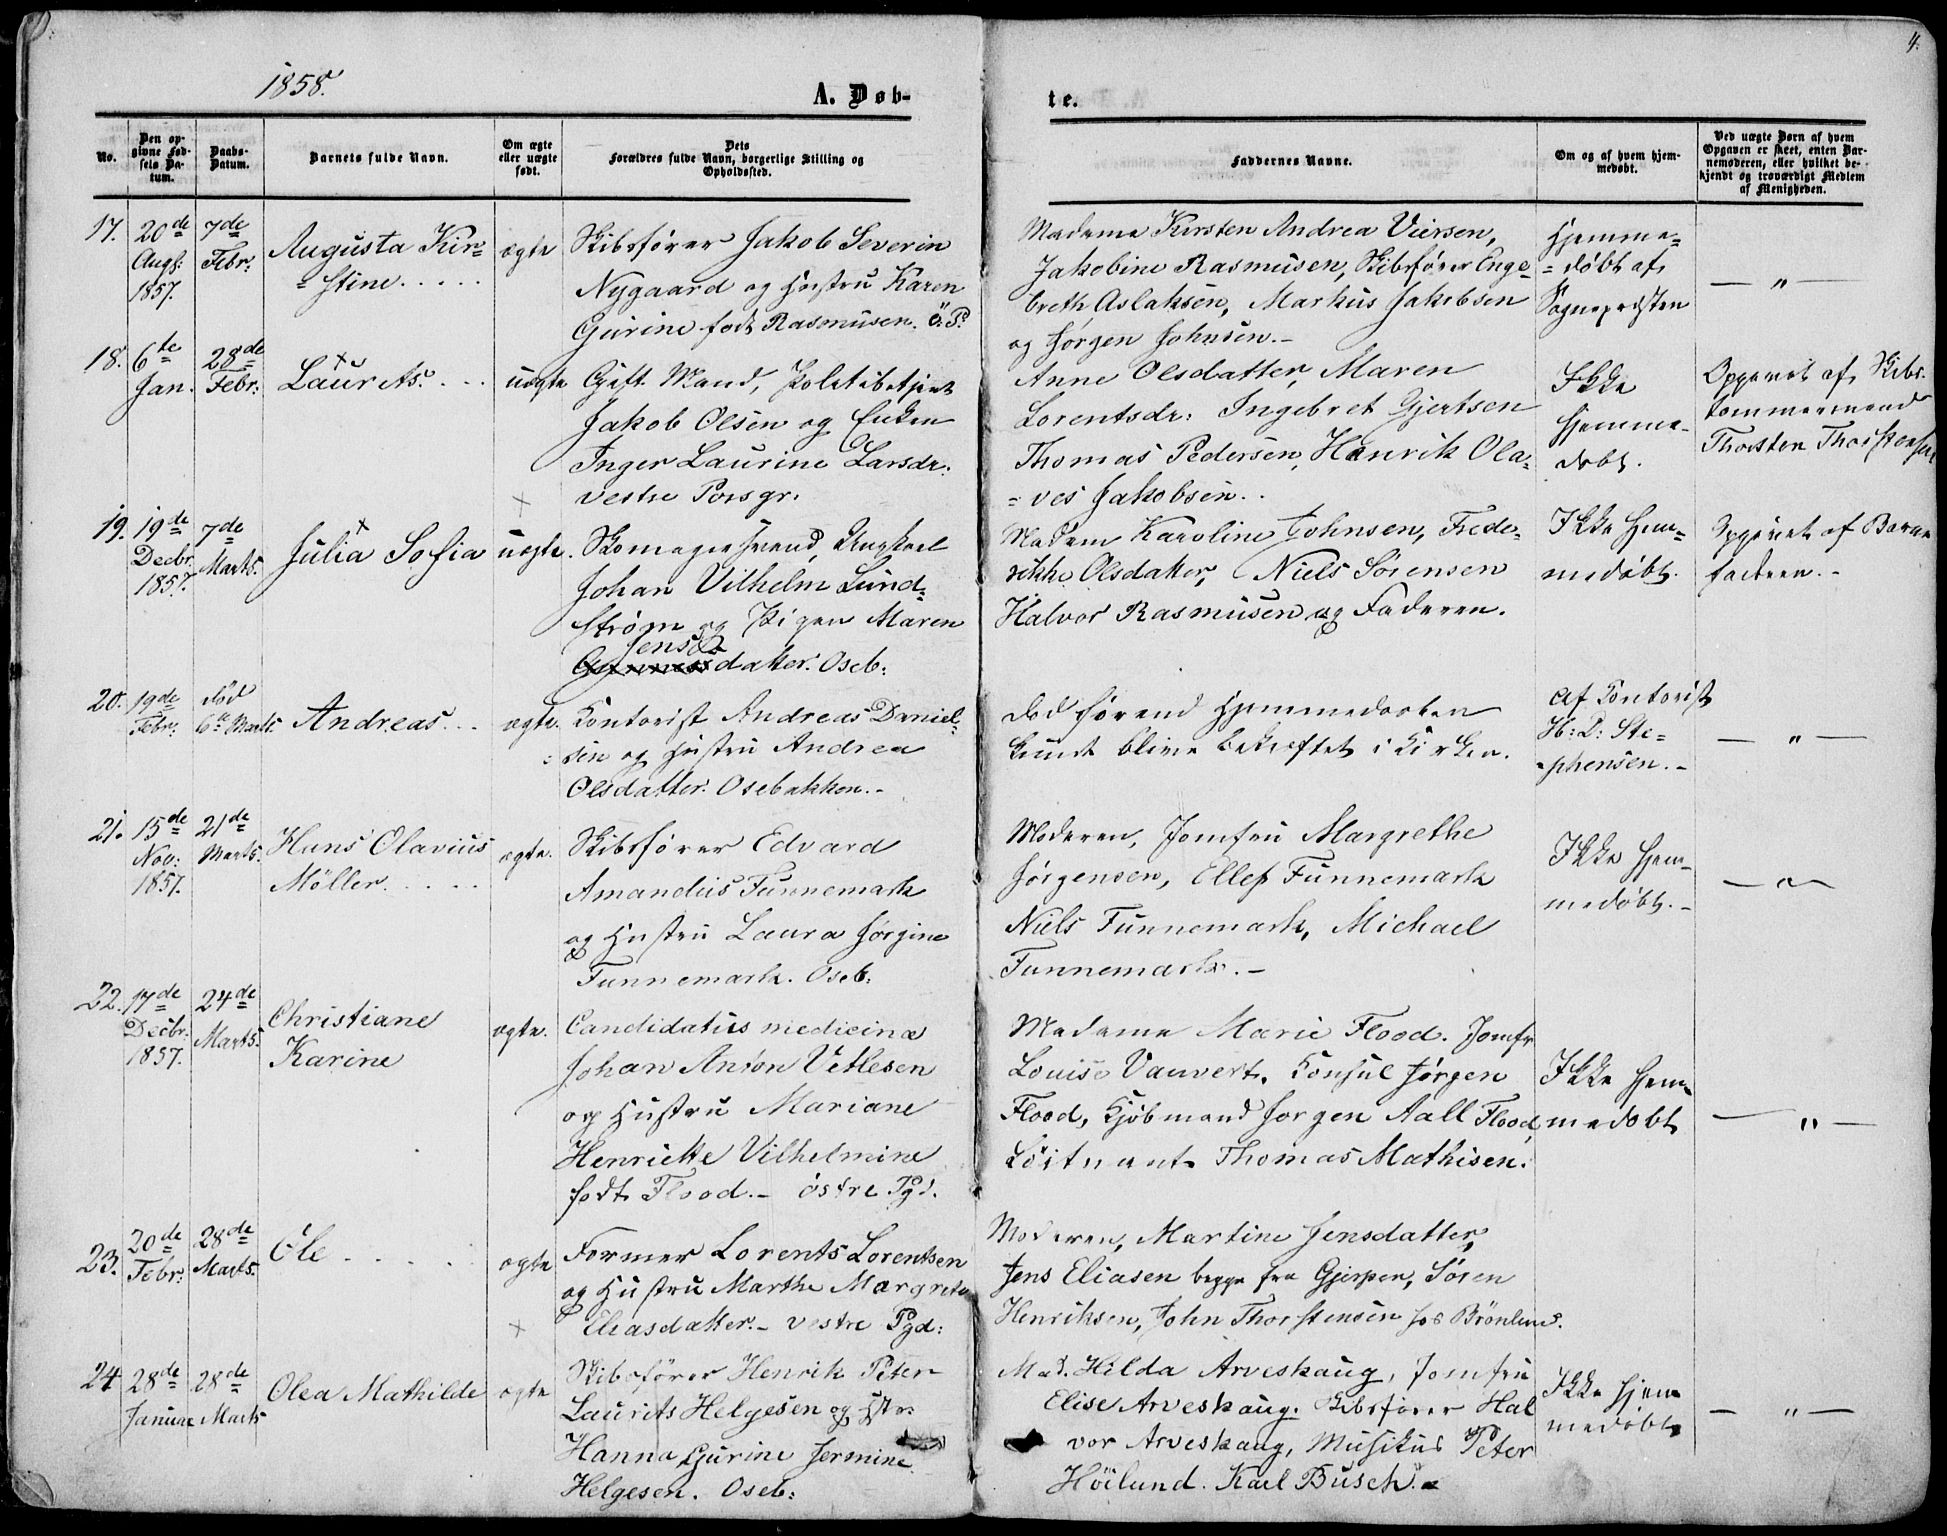 1858.
A. Døb-
te.
4.
No.
Den op-
givne Fød-
sels Da-
tum.
Daabs-
Datum.
Barnets fulde Navn.
Om ægte
eller uægte
født.
Dets
Forældres fulde Navn, borgerlige Stilling og
Opholdssted.
Faddernes Navne.
Om og af hvem hjem-
medøbt.
Ved uægte Børn af hvem
Opgaven er skeet, enten Bar-
nemoderen, eller hvilket be-
kjendt og troværdigt Medlem
af Menigheden.
17.
20de
Augs:
1857.
7de
Febr:
Augusta Kir=
=stine.....
ægte
Skibsfører Jakob Severin
Nygaard og Hustru Karen
Gurine født Rasmusen. Ö: P.
Madame Kirsten Andrea Viersen,
Jakobine Rasmusen, Skibsfører Enge=
breth Aslaksen, Markus Jakobsen
og Jørgen Johnsen.-
Hjemme=
=døbt af
Sognepresten
— " —
18.
6te
Jan.
28de
Febr:
Laurits...
uægte
Gift Mand, Toldbetjent
Jakob Olsen og Enken
Inger Laurine Larsdr:
vestre Porsgr:
Anne Olsdatter, Maren
Lorentsdr: Ingebret Gjertsen
Thomas Pedersen, Hanrik Ola=
=ves Jakobsen..
Ikke
hjemme-
døbt.
Opgivet af Skibs-
tømmermand
Thorsten Thorstensen
19.
19de
Decbr
1857.
7de
Marts.
Julia Sofia
uægte.
Skomagersvend, Ungkarl
Johan Vilhelm Lund=
strøm og Pigen Maren
Jens
datter. Oseb:
Madam Karoline Johnsen, Frede=
rikke Olsdatter, Niels Sørensen
Halvor Rasmusen og Faderen.
Ikke hjem=
medøbt.
Opgivet af Barne
faderen.-
20.
19de
Febr:
død
6te Marts.
Andreas...
ægte.
Kontorist Andreas Daniel=
=sen og Hustru Andrea
Olsdatter. Osebakken.-
Død førend Hjemmedaaben
kunde blive bekræftet i Kirken.
af Kontorist
H: D: Ste=
=phensen.-
— " —
21.
15de
Nov:
1857.
21de
Marts.
Hans Olavius
Møller.....
ægte.
Skibsfører Edvard
Amandus Funnemark
og Hustru Laura Jørgine
Funnemark. Oseb:
Moderen, Jomfru Margrethe
Jörgensen, Ellef Funnemark
Niels Funnemark, Michael
Funnemark.-
Ikke hjem=
medøbt.-
— " —
22.
17de
Decbr:
1857.
24de
Marts.
Christiane
Karine
ægte.
Candidatus medicinæ
Johan Anton Vetlesen
og Hustru Mariane
Henriette Vilhelmine
født Flood.- östre Pgd.
Madame Marie Flood. Jomfr
Louise Vauvert. Konsul Jørgen
Flood, Kjøbmand Jørgen Aall Flood,
Löitnant Thomas Mathisen.
Ikke hjem=
medøbt
— " —
23.
20de
Febr:
28de
Marts.
Ole.....
ægte
Former Lorents Lorentsen
og Hustru Marthe Margrete
Eliasdatter.- vestre Pgd:
Moderen, Martine Jensdatter,
Jens Eliasen begge fra Gjerpen, Sören
Henriksen, John Thorstensen hos Brønlund.
24
28de
Januar
28de
Marts
Olea Mathilde
ægte
Skibsfører Henrik Peter
Laurits Helgesen og Hstr:
Hanna Gurine Jermine
Helgesen. Oseb:
Mad. Hilda Arveskaug, Jomfru
Elise Arveskaug. Skibsfører Hal
vor Arveskaug, Musikus Peter
Höilund. Karl Busch.
Ikke hjem
medøbt
— " —